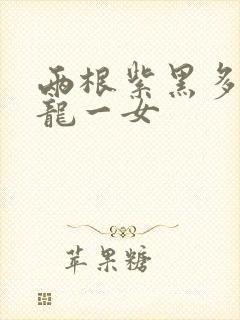 兩根紫黑多
龍一女
苹果糖